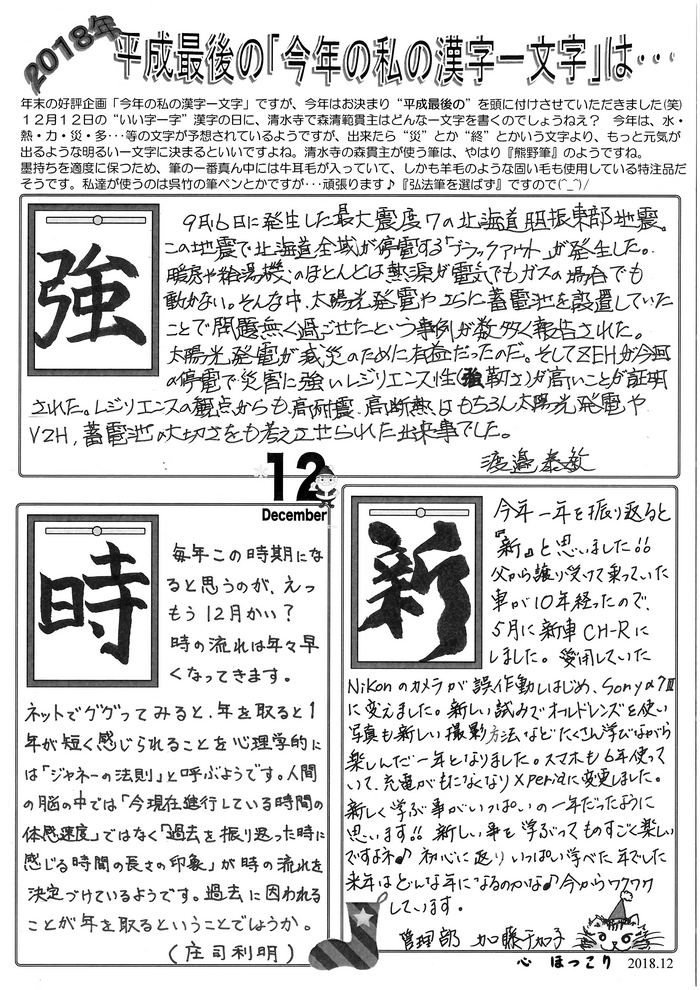 2018年
平成最後の「今年の私の漢字一文字」は…
年末の好評企画「今年の私の漢字一文字」ですが、今年はお決まり“平成最後の”を頭に付けさせていただきました(笑)
12月12日の“いい字一字”漢字の日に、清水寺で森清範貫主はどんな一文字を書くのでしょうねえ？　今年は、水・
熱・力・災・多…等の文字が予想されているようですが、出来たら“災”とか“終”とかいう文字より、もっと元気が
出るような明るい一文字に決まるといいですよね。清水寺の森貫主が使う筆は、やはり『熊野筆』のようですね。
墨持ちを適度に保つため、筆の一番真ん中には牛耳毛が入っていて、しかも羊毛のような固い毛も使用している特注品だ
そうです。私達が使うのは呉竹の筆ペンとかですが…頑張ります♪『弘法筆を選ばず』ですので(^_^)/
強
9月6日に発生した最大震度7の北海道胆振東部地震。
この地震で北海道全域が停電する「ブラックアウト」が発生した。
暖房や給湯機のほとんどは熱源が電気でもガスの場合でも
動かない。そんな中、太陽光発電やさらに蓄電池を設置していた
ことで問題無く過ごせたという事例が数多く報告された。
太陽光発電が減災のために有益だったのだ。そしてZEHが今回
の停電で災害に強いレジリエンス性(強靭さ)が高いことが証明
された。レジリエンスの観点からも、高耐震、高断熱はもちろん太陽光発電や
V2H、蓄電池の大切さをも考えさせられた出来事でした。
渡邉泰敏
12
December
時
毎年この時期にな
ると思うのが、えっ
もう12月かい？
時の流れは年々早
くなってきます。
ネットでググってみると、年を取ると1
年が短く感じられることを心理学的に
は「ジャネーの法則」と呼ぶようです。人間
の脳の中では「今現在進行している時間の
体感速度」ではなく「過去を振り返った時に
感じる時間の長さの印象」が時の流れを
決定づけているようです。過去に囚われる
ことが年を取るということでしょうか。
(庄司利明)
新
今年一年を振り返ると
『新』と思いました!!
父から譲り受けて乗っていた
車が10年経ったので、
5月に新車CH-Rに
しました。愛用していた
Nikonのカメラが誤作動しはじめ、Sonyα7Ⅲ
に変えました。新しい試みでオールドレンズを使い
写真も新しい撮影方法などたくさん学びながら
楽しんだ一年となりました。スマホも6年使って
いて、充電がもたなくなりXperiaに変更しました。
新しく学ぶ事がいっぱいの一年だったように
思います!! 新しい事を学ぶってものすごく楽しい
ですよネ♪ 初心に返りいっぱい学べた年でした
来年はどんな年になるのかな♪今からワクワク
しています。
管理部 加藤千加子
心 ほっこり 2018.12